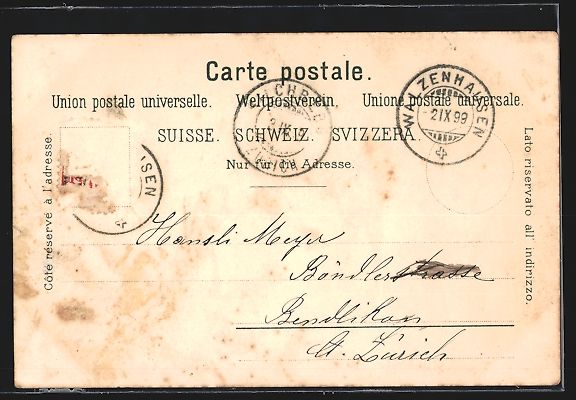 Carte postale.
Union postale universelle. Weltpostverein. Unione postale universale.
SUISSE. SCHWEIZ. SVIZZERA.
Nur für die Adresse.
Côté réservé à l'adresse.
Lato riservato all' indirizzo.
WALZENHAUSEN
2 IX 99
USEN
Hansli Meyer
Böndlerstrasse
Bendlikon
Ct. Zürich